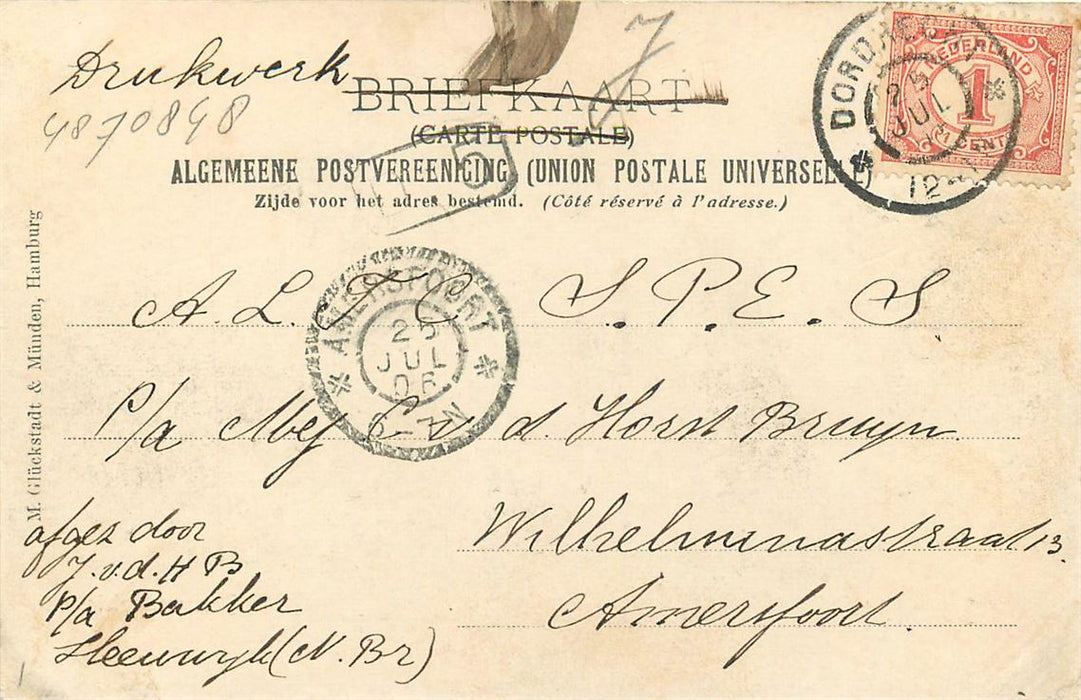 Drukwerk
4870848
7
BRIEFKAART
(CARTE POSTALE)
ALGEMEENE POSTVEREENIGING (UNION POSTALE UNIVERSELLE)
Zijde voor het adres bestemd. (Côté réservé à l'adresse.)
NEDERLAND
1
CENT
DORDRECHT
25
JUL
12
5
AMERSFOORT
25
JUL
06
6-7N
A. L. F. C. S. P. E. S
P/a Mej v. d. Horst Bruyn.
Wilhelminastraat 13.
Amersfoort.
afgez door
J. v. d. H B
p/a Bakker
Sleeuwyk (N. Br)
M. Glückstadt & Münden, Hamburg